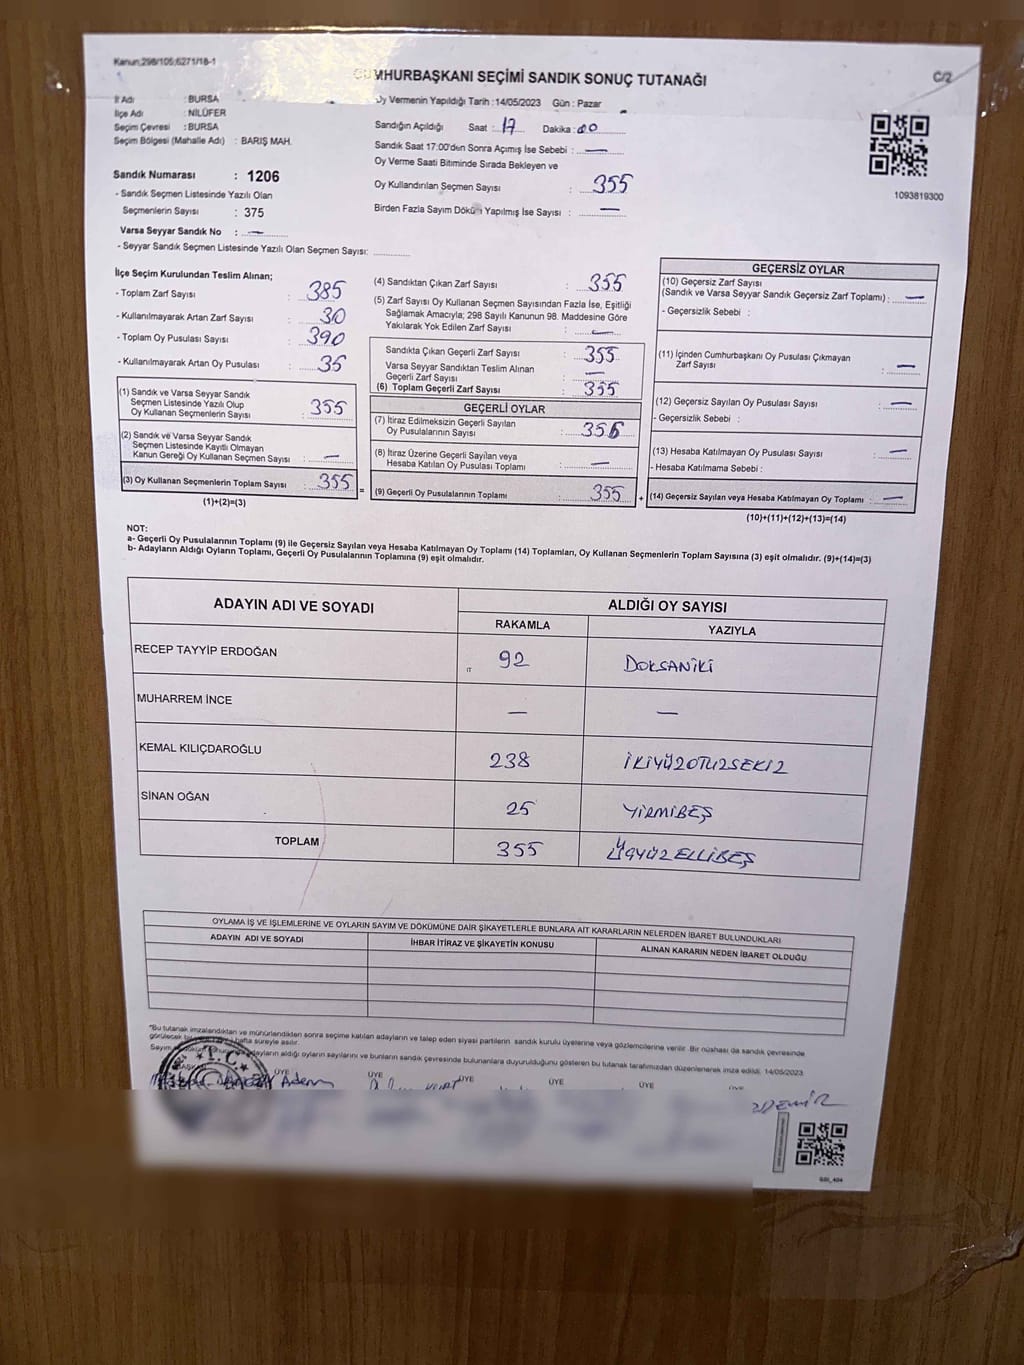 Kanun;298/105;6271/18-1
CUMHURBAŞKANI SEÇİMİ SANDIK SONUÇ TUTANAĞI
C/2
İl Adı : BURSA
İlçe Adı : NİLÜFER
Seçim Çevresi : BURSA
Seçim Bölgesi (Mahalle Adı) : BARIŞ MAH.
Sandık Numarası : 1206
- Sandık Seçmen Listesinde Yazılı Olan
Seçmenlerin Sayısı : 375
Varsa Seyyar Sandık No : —
- Seyyar Sandık Seçmen Listesinde Yazılı Olan Seçmen Sayısı:
Oy Vermenin Yapıldığı Tarih :14/05/2023 Gün : Pazar
Sandığın Açıldığı Saat : 17 Dakika : 00
Sandık Saat 17:00'den Sonra Açımış İse Sebebi : —
Oy Verme Saati Bitiminde Sırada Bekleyen ve
Oy Kullandırılan Seçmen Sayısı : 355
Birden Fazla Sayım Dökü ı Yapılmış İse Sayısı : —
1093819300
İlçe Seçim Kurulundan Teslim Alınan;
- Toplam Zarf Sayısı : 385
- Kullanılmayarak Artan Zarf Sayısı : 30
- Toplam Oy Pusulası Sayısı : 390
- Kullanılmayarak Artan Oy Pusulası : 35
(1) Sandık ve Varsa Seyyar Sandık
Seçmen Listesinde Yazılı Olup
Oy Kullanan Seçmenlerin Sayısı : 355
(2) Sandık ve Varsa Seyyar Sandık
Seçmen Listesinde Kayıtlı Olmayan
Kanun Gereği Oy Kullanan Seçmen Sayısı : —
(3) Oy Kullanan Seçmenlerin Toplam Sayısı : 355
(1)+(2)=(3)
(4) Sandıktan Çıkan Zarf Sayısı : 355
(5) Zarf Sayısı Oy Kullanan Seçmen Sayısından Fazla İse, Eşitliği
Sağlamak Amacıyla; 298 Sayılı Kanunun 98. Maddesine Göre
Yakılarak Yok Edilen Zarf Sayısı : —
Sandıkta Çıkan Geçerli Zarf Sayısı : 355
Varsa Seyyar Sandıktan Teslim Alınan
Geçerli Zarf Sayısı : —
(6) Toplam Geçerli Zarf Sayısı : 355
GEÇERLİ OYLAR
(7) İtiraz Edilmeksizin Geçerli Sayılan
Oy Pusulalarının Sayısı : 355
(8) İtiraz Üzerine Geçerli Sayılan veya
Hesaba Katılan Oy Pusulası Toplamı : —
= (9) Geçerli Oy Pusulalarının Toplamı : 355 +
GEÇERSİZ OYLAR
(10) Geçersiz Zarf Sayısı
(Sandık ve Varsa Seyyar Sandık Geçersiz Zarf Toplamı) : —
- Geçersizlik Sebebi :
(11) İçinden Cumhurbaşkanı Oy Pusulası Çıkmayan
Zarf Sayısı : —
(12) Geçersiz Sayılan Oy Pusulası Sayısı : —
- Geçersizlik Sebebi :
(13) Hesaba Katılmayan Oy Pusulası Sayısı : —
- Hesaba Katılmama Sebebi :
(14) Geçersiz Sayılan veya Hesaba Katılmayan Oy Toplamı : —
(10)+(11)+(12)+(13)=(14)
NOT:
a- Geçerli Oy Pusulalarının Toplamı (9) ile Geçersiz Sayılan veya Hesaba Katılmayan Oy Toplamı (14) Toplamları, Oy Kullanan Seçmenlerin Toplam Sayısına (3) eşit olmalıdır. (9)+(14)=(3)
b- Adayların Aldığı Oyların Toplamı, Geçerli Oy Pusulalarının Toplamına (9) eşit olmalıdır.
ADAYIN ADI VE SOYADI ALDIĞI OY SAYISI
RAKAMLA YAZIYLA
RECEP TAYYİP ERDOĞAN 92 DOKSANİKİ
MUHARREM İNCE — —
KEMAL KILIÇDAROĞLU 238 İKİYÜZOTUZSEKİZ
SİNAN OĞAN 25 YİRMİBEŞ
TOPLAM 355 ÜÇYÜZELLİBEŞ
OYLAMA İŞ VE İŞLEMLERİNE VE OYLARIN SAYIM VE DÖKÜMÜNE DAİR ŞİKAYETLERLE BUNLARA AİT KARARLARIN NELERDEN İBARET BULUNDUKLARI
ADAYIN ADI VE SOYADI İHBAR İTİRAZ VE ŞİKAYETİN KONUSU ALINAN KARARIN NEDEN İBARET OLDUĞU
"Bu tutanak imzalandıktan ve mühürlendikten sonra seçime katılan adayların ve talep eden siyasi partilerin sandık kurulu üyelerine veya gözlemcilerine verilir. Bir nüshası da sandık çevresinde
görülecek bir hafta süreyle asılır.
Sayım adayların aldığı oyların sayılarını ve bunların sandık çevresinde bulunanlara duyurulduğunu gösteren bu tutanak tarafımızdan düzenlenerek imza edildi. 14/05/2023
T.C.
BAŞKAN ÜYE ÜYE ÜYE ÜYE ÜYE ÜYE
Adem